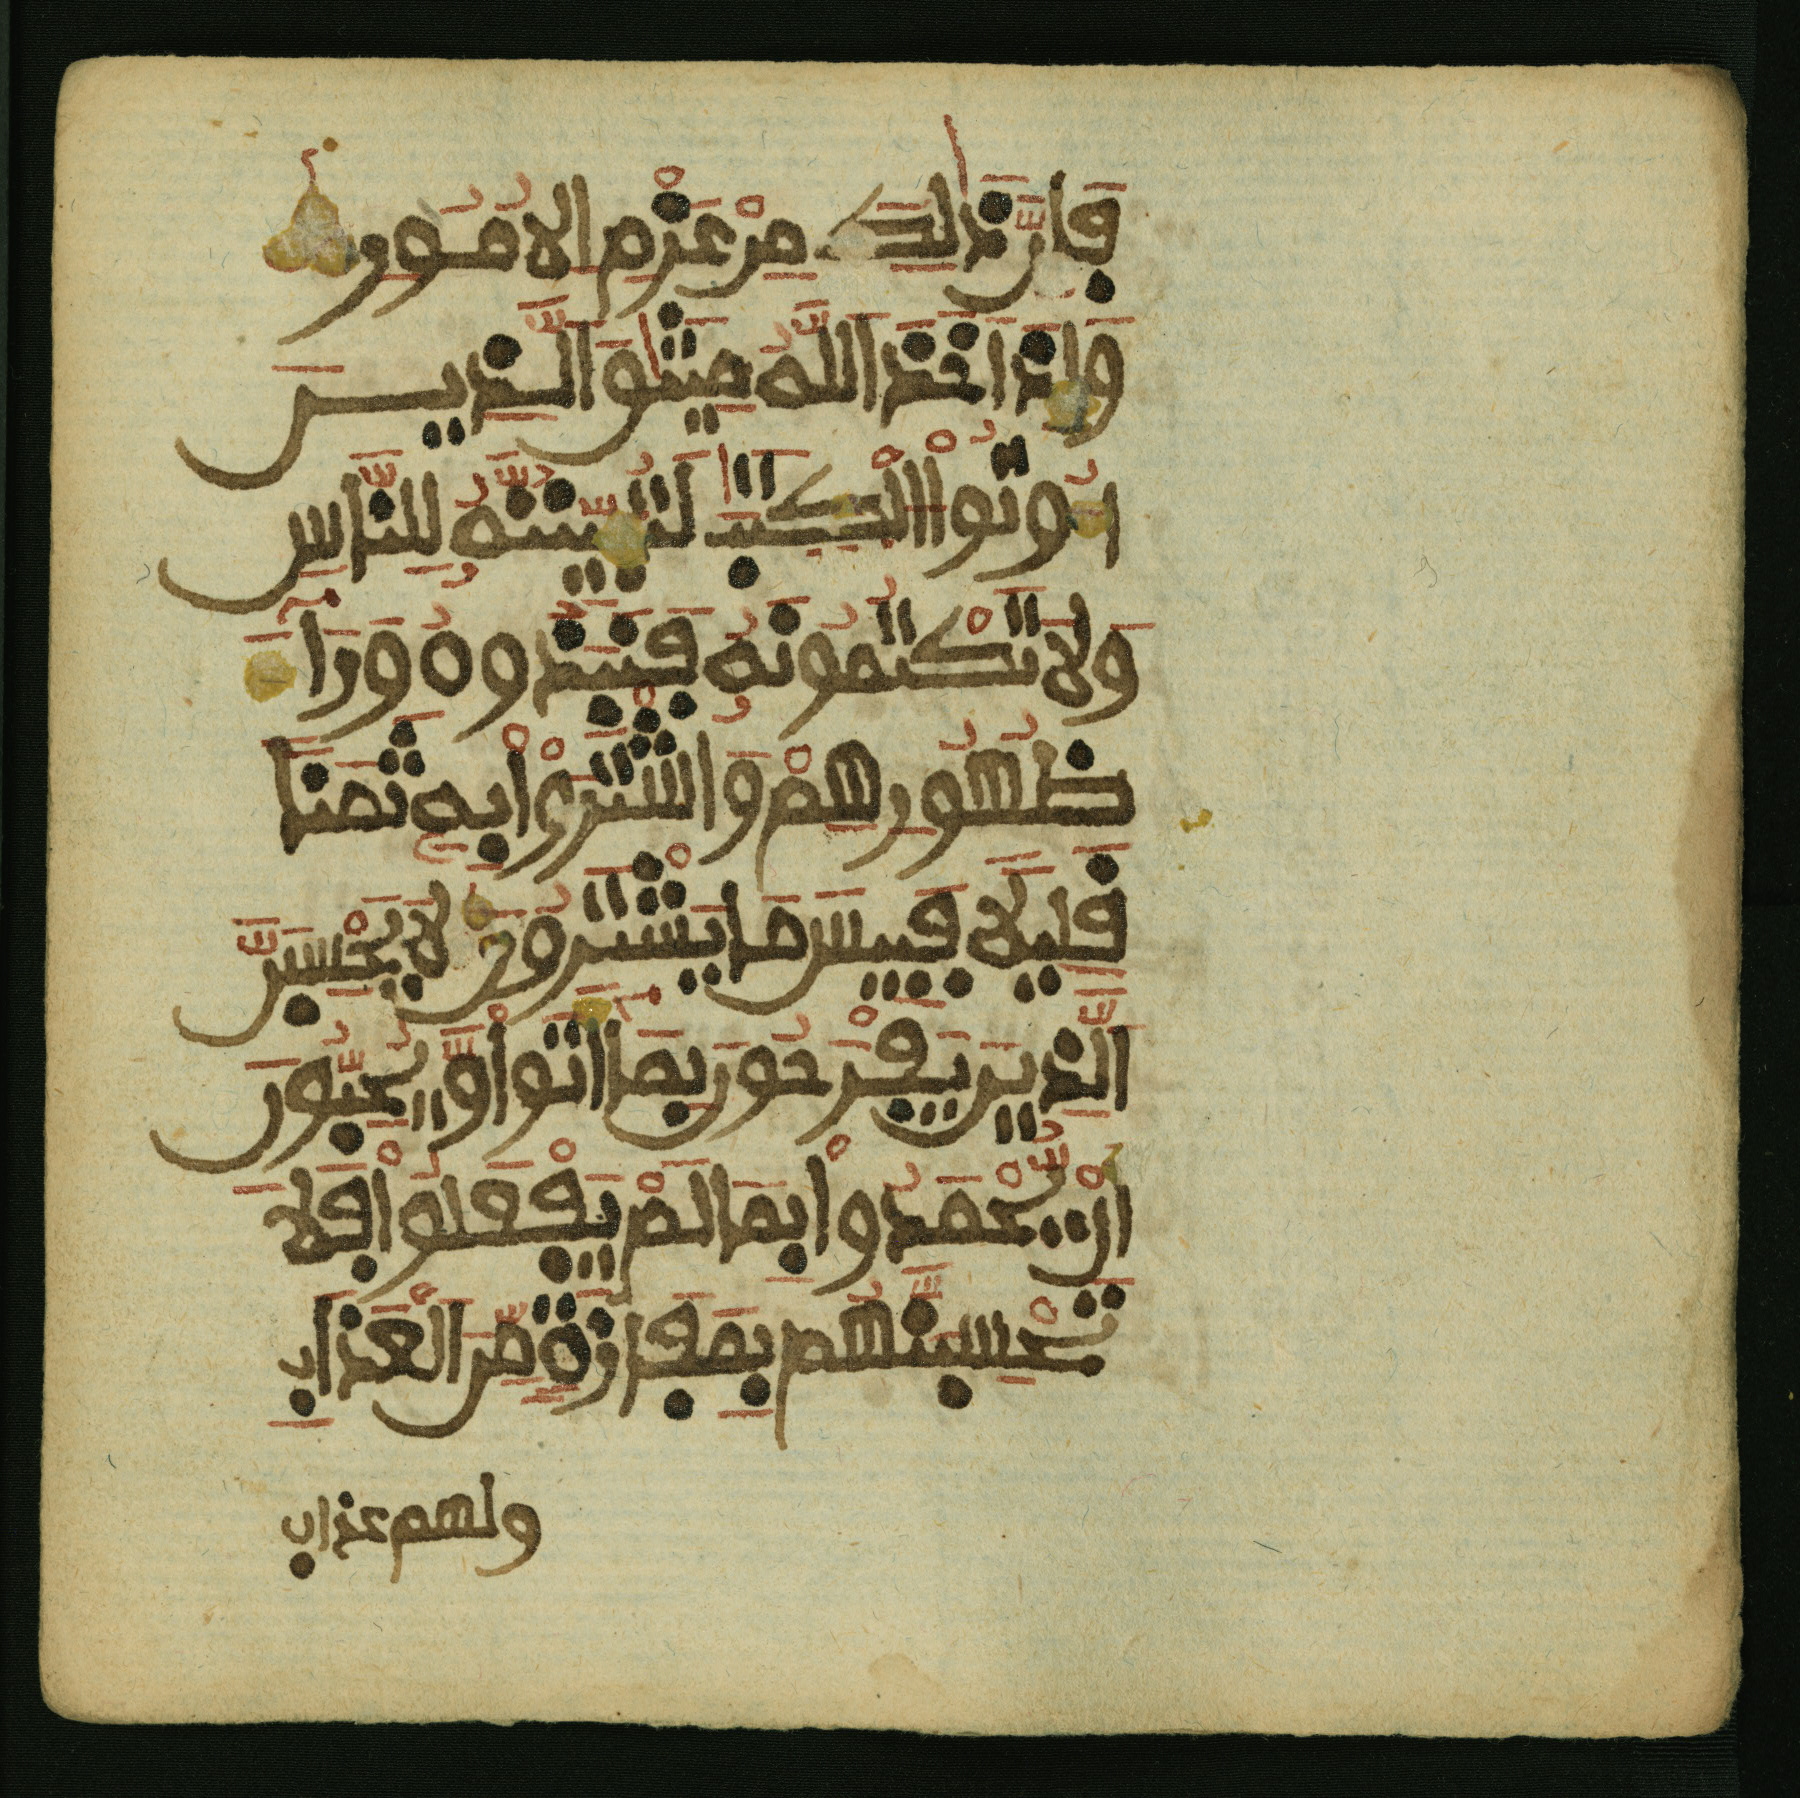 فَإِنَّ ذَٰلِكَ مِنْ عَزْمِ الُامُورِ
وَإِذَ اَخَذَ اللَّهُ مِيثَٰقَ الَّذِينَ
أُوتُوا۟ الْكِتَٰبَ لَتُبَيِّنُنَّهُۥ لِلنَّاسِ
وَلَا تَكْتُمُونَهُۥ فَنَبَذُوهُ وَرَآءَ
ظُهُورِهِمْ وَاشْتَرَوْا۟ بِهِۦ ثَمَنًا
قَلِيلًا فَبِيسَ مَا يَشْتَرُونَ لَا يَحْسِبَنَّ
الَّذِينَ يَفْرَحُونَ بِمَآ أَتَوا۟ وَّيُحِبُّونَ
أَنْ يُّحْمَدُوا۟ بِمَا لَمْ يَفْعَلُوا۟ فَلَا
تَحْسِبَنَّهُم بِمَفَازَةٍ مِّنَ الْعَذَابِ
ولهم عذاب